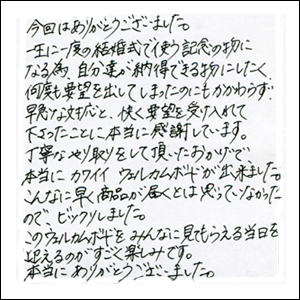 今回はありがとうございました。
一生に一度の結婚式で使う記念の物に
なる為、自分達が納得できる物にしたく、
何度も要望を出してしまったのにもかかわらず
早急な対応と、快く要望を受け入れて
下さったことに本当に感謝しています。
丁寧なやり取りをして頂いたおかげで、
本当にカワイイウェルカムボードが出来ました。
こんなに早く商品が届くとは思っていなかった
ので、ビックリしました。
このウェルカムボードをみんなに見てもらえる当日を
迎えるのがすごく楽しみです。
本当にありがとうございました。